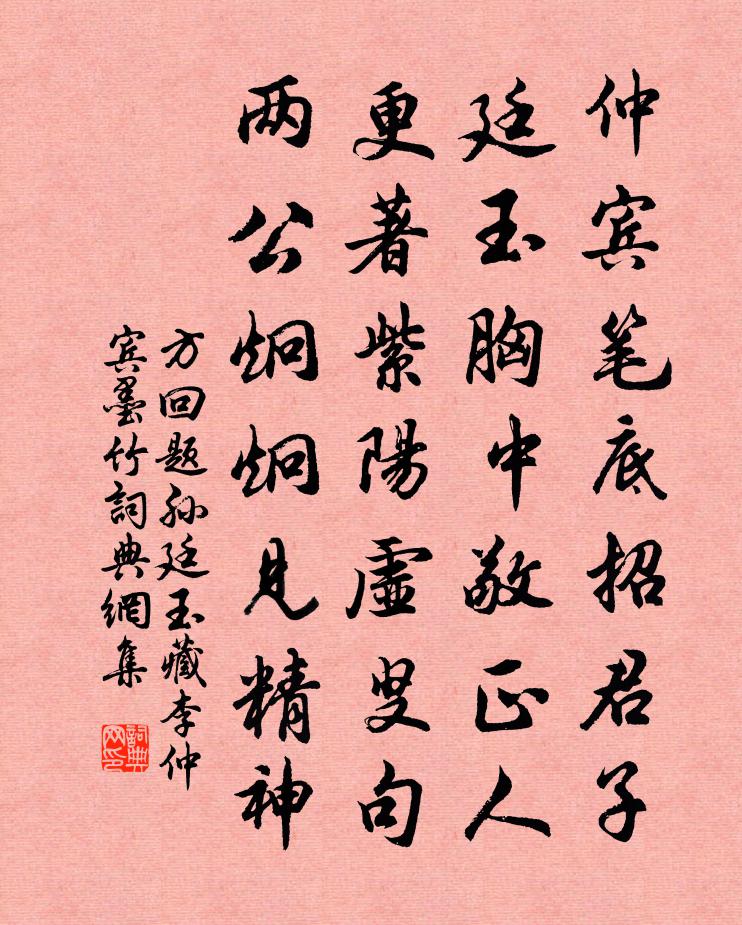 仲宾笔底招君子
廷玉胸中敬正人
更著紫陽虛叟句
两公炯炯見精神
方回题孙廷玉藏李仲
宾墨竹詞典網集
詞典网印